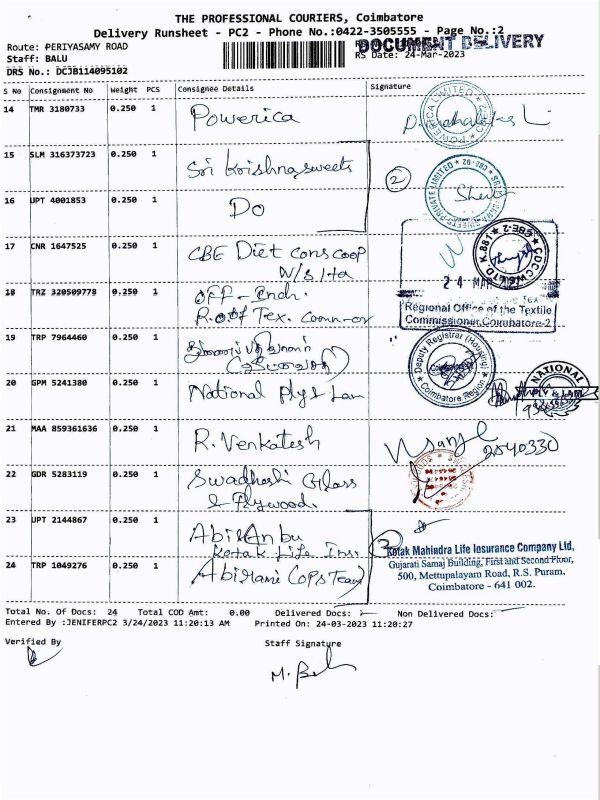 THE PROFESSIONAL COURIERS, Coimbatore
Delivery Runsheet - PC2 - Phone No.:0422-3505555 - Page No.:2
Route: PERIYASAMY ROAD
DOCUMENT DELIVERY
Staff: BALU
RS Date: 24-Mar-2023
DRS No.: DCJB114095102
S No Consignment No Weight PCS Consignee Details Signature
14 TMR 3180733 0.250 1 Powerica
15 SLM 316373723 0.250 1 Sri Krishna sweets
2
16 UPT 4001853 0.250 1 Do
17 CNR 1647525 0.250 1 CBE Diet Cons coop
W/S Ltd
24 MAR
18 TRZ 320509778 0.250 1 Off-
R.O of Tex. Comm-or
Regional Office of the Textile
Commissioner, Coimbatore-2
19 TRP 7964460 0.250 1
Deputy Registrar (Housing)
Coimbatore Region
20 GPM 5241380 0.250 1 National Plys Lam
NATIONAL
PLY & LAM
21 MAA 859361636 0.250 1 R. Venkatesh
2540330
22 GDR 5283119 0.250 1 Swadhashi Glass
& Plywood.
23 UPT 2144867 0.250 1 Abi Anbu
Kotak Life Ins.
24 TRP 1049276 0.250 1 Abirami (Cops Team)
Kotak Mahindra Life Insurance Company Ltd,
Gujarati Samaj Building, First and Second Floor,
500, Mettupalayam Road, R.S. Puram,
Coimbatore - 641 002.
Total No. Of Docs: 24 Total COD Amt: 0.00 Delivered Docs: Non Delivered Docs:
Entered By :JENIFERPC2 3/24/2023 11:20:13 AM Printed On: 24-03-2023 11:20:27
Verified By Staff Signature